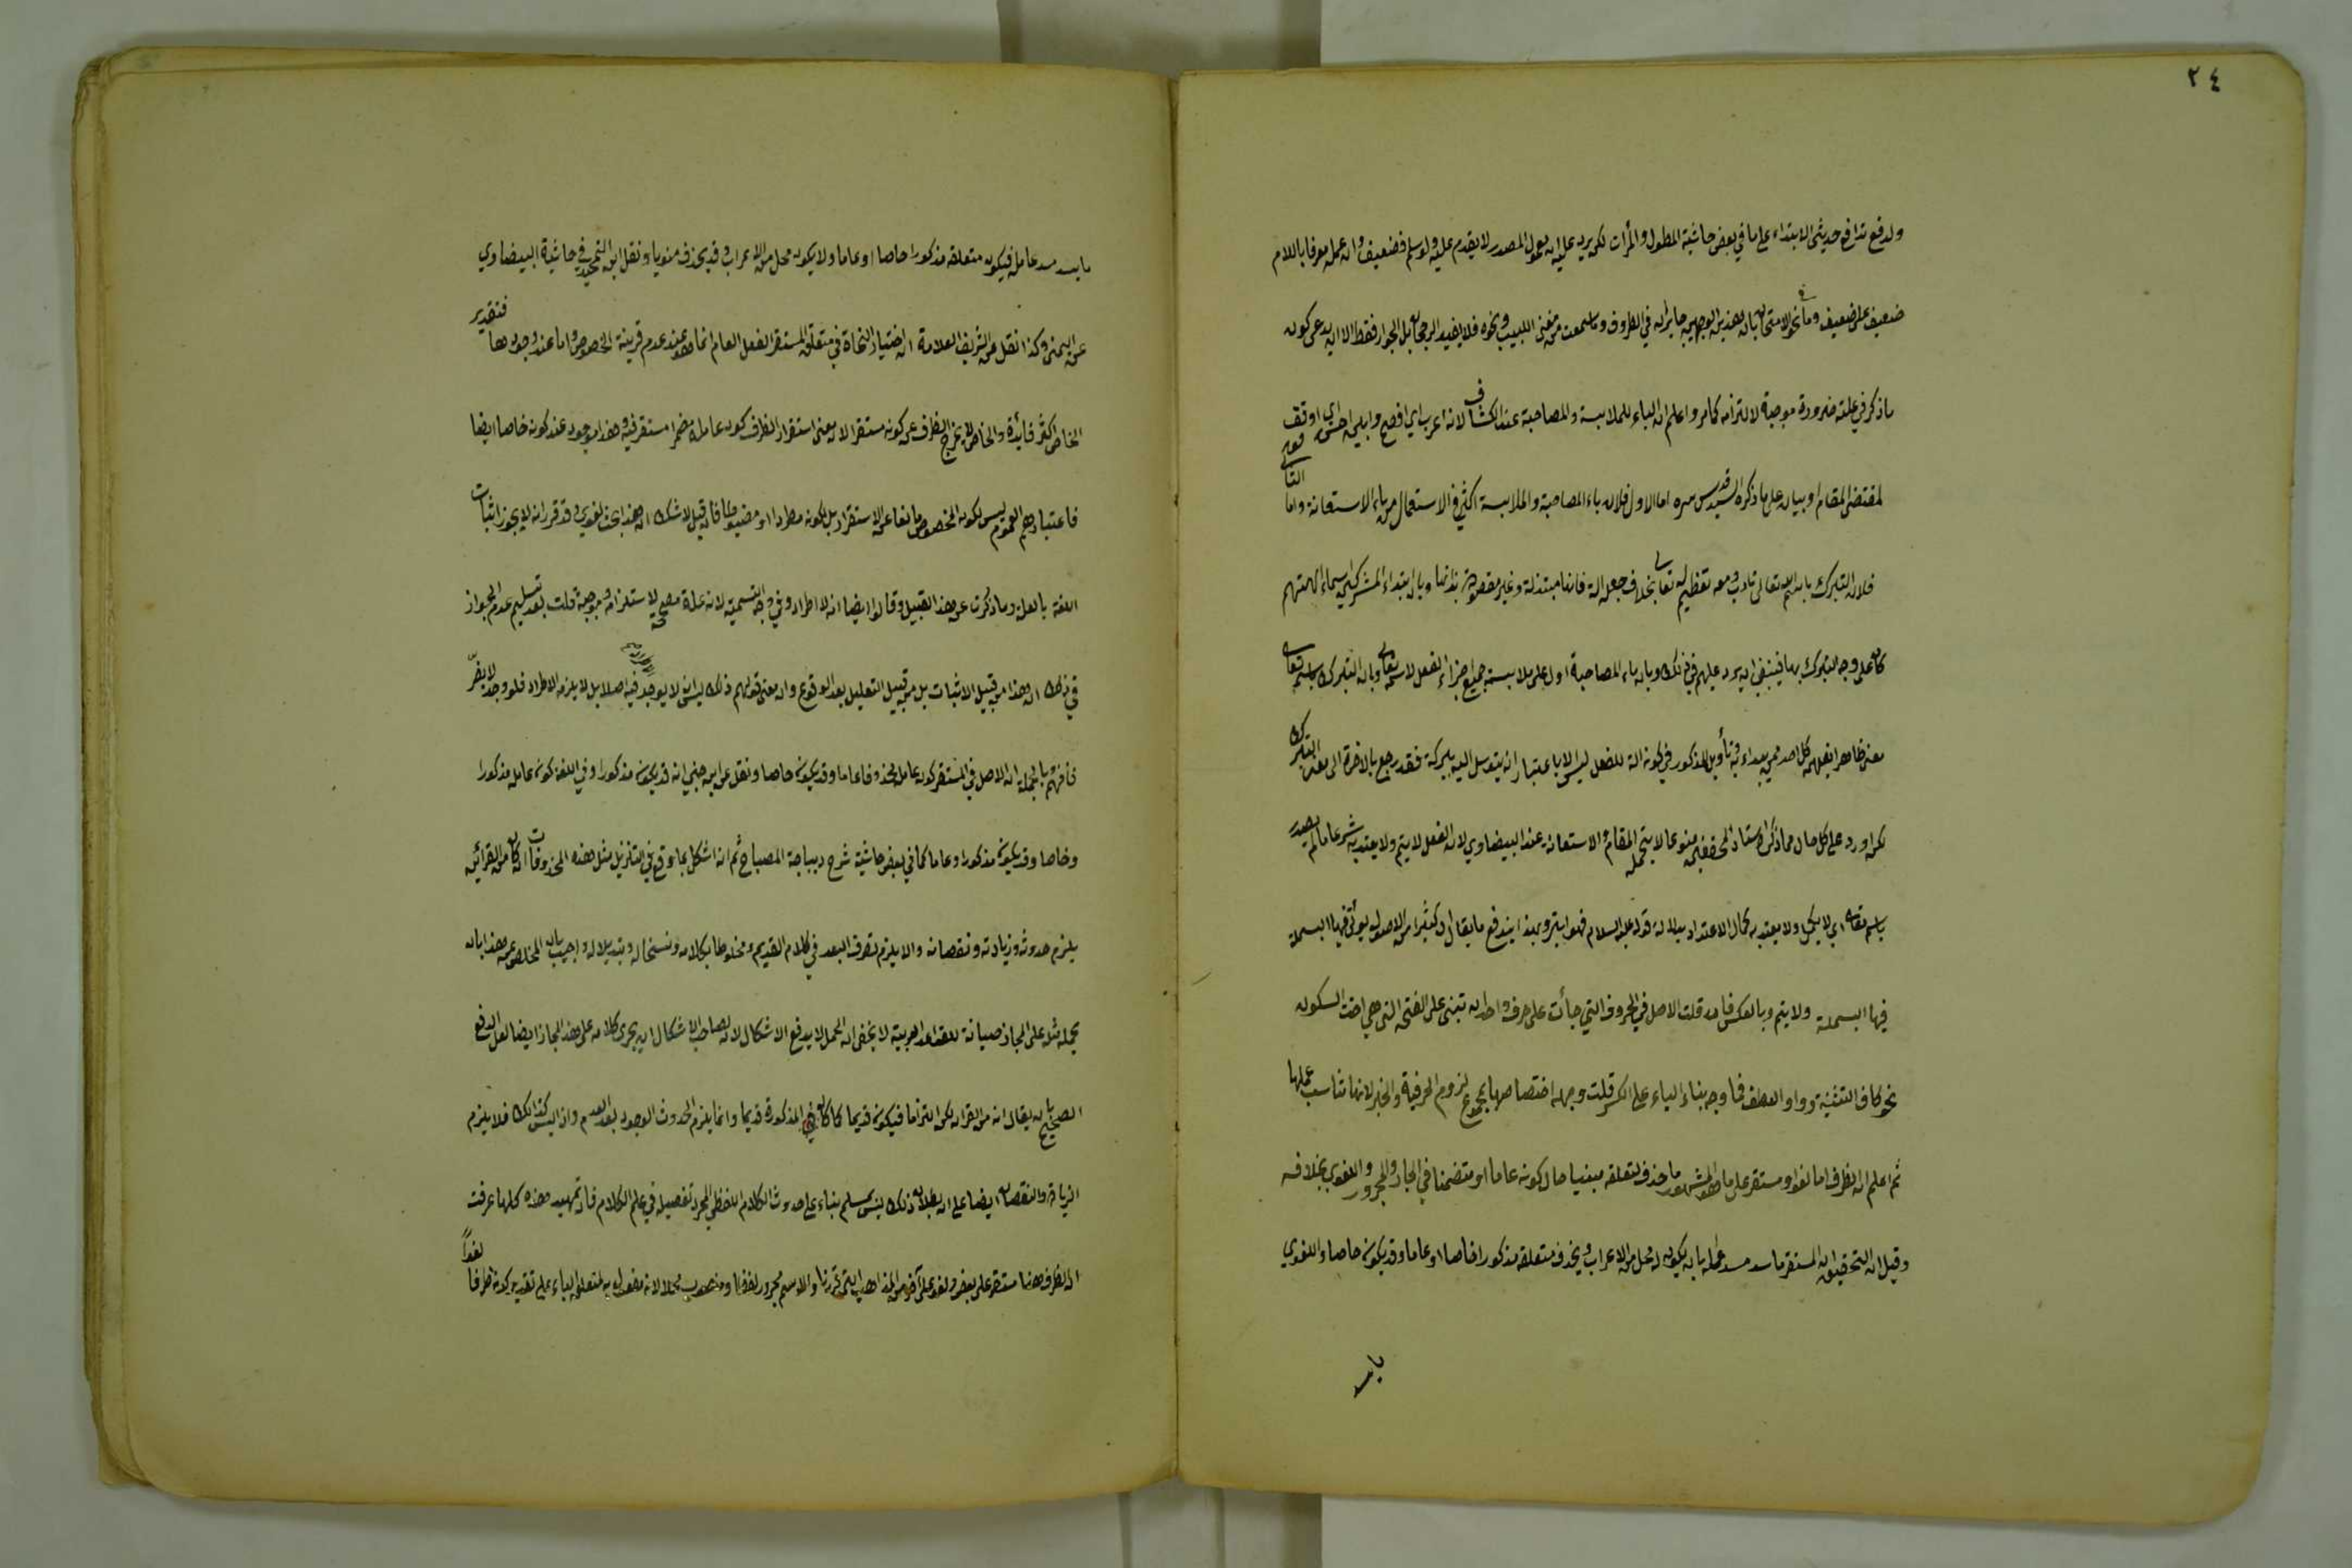 ٢٤
ولدفع تدافع حديثى الابتداء على ما في بعض حاشية المطول والمرأت لكن يرد عليه ان معمول المصدر لا يتقدم عليه ولو سلم فضعيف وان عمله معرفا باللام
ضعيف على ضعيف وما بان هذين الوجهين جايزان في الظروف وما سمعت من مغنى اللبيب ونحوه فلا يفيد الرجحان بل الجواز فقط الا ان يدعى كون
ما ذكر في علته ضرورة موجبة لالتزامه كما مر واعلم ان الباء للملابسة والمصاحبة عند الكشاف لانه اعرب اي افصح وابين احسن اي اوفق
لمقتضى المقام او بيان على ما ذكره السيد قدس سره اما الاول فلان باء المصاحبة والملابسة اكثر في الاستعمال من باء الاستعانة واما الثاني
فلان التبرك باسم الله تعالى تادب معه وتعظيم له تعالى بخلاف جعله الة فانها مبتذلة وغير مقصودة بذاتها وبان ابتداء المشركين باسماء الهتهم
كان على وجه التبرك بها فينبغي ان يرد عليهم في ذلك وبان باء المصاحبة ادل على ملابسة جميع اجزاء الفعل لاسمه تعالى وبان التبرك باسمه تعالى
معنى ظاهر يفهمه كل احد ممن يبتدء به وتأويل المذكور في كونه الة للفعل ليس الا باعتبار انه يتوسل اليه ببركته فقد رجع بالاخرة الى معنى التبرك
لكن اورد على كل حال مما ذكر استاد المحققين منوعا لا يتحمله المقام والاستعانة عند البيضاوي لان الفعل لا يتم ولا يعتد به شرعا ما لم يصدر
باسمه تعالى اي لا يكمل ولا يعتد به كمال الاعتداد بدلالة قوله عليه السلام فهو ابتر وبهذا يندفع ما يقال ان كثيرا من الامور يؤتى فيها البسملة
فيها البسملة ولا يتم وبالعكس فان قلت الاصل في الحروف التي جائت على حرف واحد ان تبنى على الفتح التي هي اخت السكون
نحو كاف التشبيه وواو العطف فما وجه بناء الباء على الكسر قلت وجهه اختصاصها بمجموع لزوم الحرفية والجر لانها تناسب عملها
ثم اعلم ان الظرف اما لغو او مستقر على ما هو المشهور ما حذف متعلقه حال كونه عاما او متضمنا في الجار والمجرور واللغوي بخلافه
وقيل ان التحقيق ان المستقر ما سد مسد عامله بان يكون له محل من الاعراب ويحذف متعلقه مذكورا خاصا او عاما وقد يكون خاصا واللغوي
ما يسد
ما يسد مسد عامله فيكون متعلقه مذكورا خاصا او عاما ولا يكون له محل من الاعراب وقد يحذف منويا ونقل ابن التمجيد في حاشية البيضاوي
عن اليمنى وكذا نقل عن الشريف العلامة ان اختيار النحاة في متعلق المستقر الفعل العام انما هو عند عدم قرينة الخصوص واما عند وجودها فتقدير
الخاص اكثر فائدة والخاص لا يخرج الظرف عن كونه مستقرا لان معنى استقرار الظرف كون عامله مضمرا مستقرا فيه وهذا موجود عند كونه خاصا ايضا
فاعتبارهم العموم ليس لكون الخصوص مانعا عن الاستقرار بل لكونه مطردا او مضبوطا فان قيل لا شك ان هذا بحث لغوي وقد قرر انه لا يجوز اثبات
اللغة بالعلة وما ذكرت عن هذا القبيل وقالوا ايضا انه لا اطراد في وجه التسمية لانه علة مصححة لا مستلزمة وموجبة قلت بعد تسليم عدم الجواز
في ذلك ان هذا من قبيل الاثبات بل من قبيل التعليل بعد الوقوع وان معنى قولهم ذلك ليس انه لا يوجد فيه اصلا بل لا يلزمه الاطراد فلو وجد لا يضر
فافهم وبالجملة ان الاصل في المستقر كون عامله محذوفا عاما وقد يكون خاصا ونقل عن ابن جني انه قد يكون مذكورا وفي اللغو كون عامله مذكورا
وخاصا وقد يكون مذكورا وعاما كما في بعض حاشية شرح ديباجة المصباح ثم انه اشكل بما وقع في التنزيل مثل هذه المحذوفات ان كان من القرائن
يلزم حدوثه وزيادته ونقصانه والا يلزم تصرف البعد في كلام القديم ومخلوطا بكلامه وبتديلا له واجيب بان المخلص عن هذا بان
يحمله على المجاز صيانة للقواعد العربية لا يخفى ان الحمل لا يدفع الاشكال لان لصاحب الاشكال ان يجرى كلامه على هذا المجاز ايضا لعل الدفع
الصحيح بان يقال انه من القران لكن التزاما فيكون قديما كما كان المذكورة قديما وانما يلزم الحدوث الوجود بعد العدم واذ ليس كذلك فلا يلزم
الزيادة والنقصان ايضا على ان بطلان ذلك ليس بمسلم بناء على حدوث الكلام اللفظي المجرد تفصيله في علم الكلام فاذ تمهيد هذه كلها عرفت
ان الظرف ههنا مستقر على بعض ولغو على آخر من المذاهب التي قررنا والاسم مجرور لفظا ومنصوب محلا لانه مفعول به لمتعلق الباء على تقدير كونه ظرفا لغوا